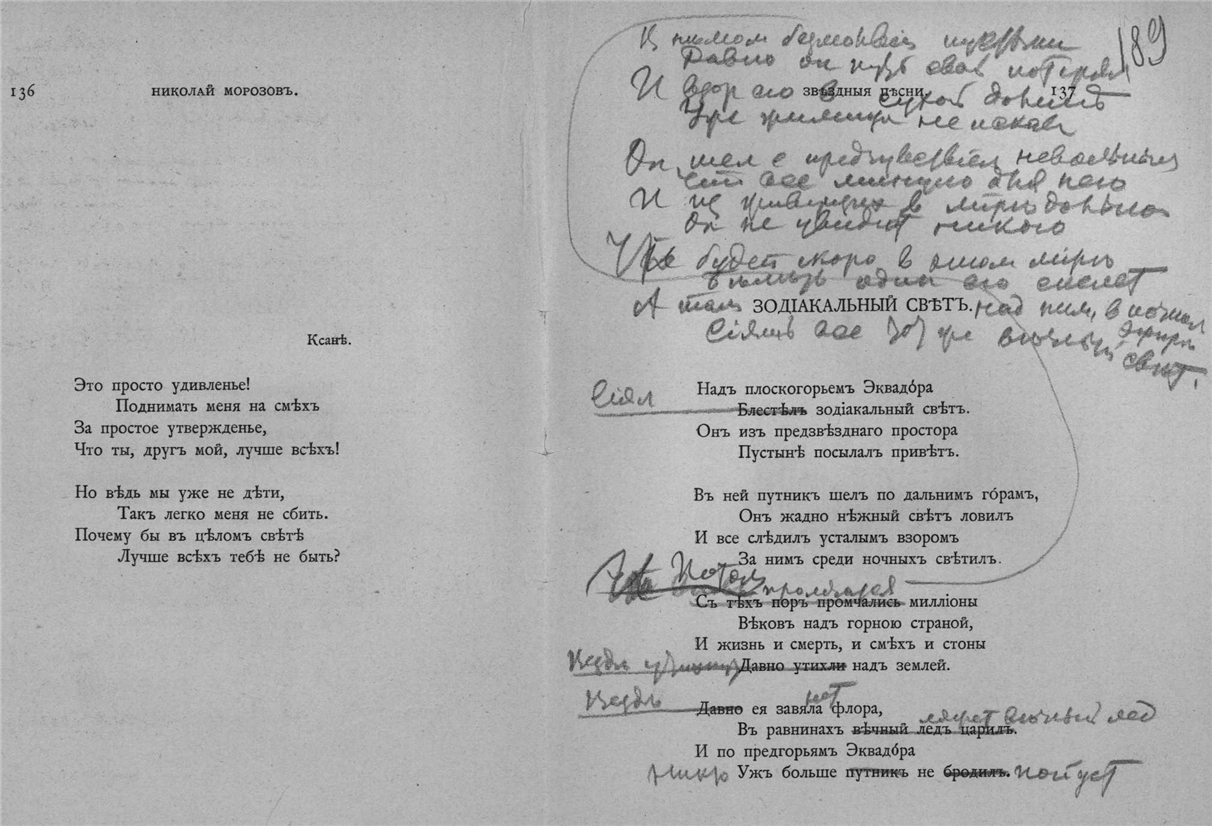 136
НИКОЛАЙ МОРОЗОВЪ.
Ксанѣ.
Это просто удивленье!
Поднимать меня на смѣхъ
За простое утвержденье,
Что ты, другъ мой, лучше всѣхъ!
Но вѣдь мы уже не дѣти,
Такъ легко меня не сбить.
Почему бы въ цѣломъ свѣтѣ
Лучше всѣхъ тебѣ не быть?
189
Давно он путь свой потерял
И
ЗВѢЗДНЫЯ ПѢСНИ.
137
не искал
Он шел с невольным
И в
Он не увидит никого
будет скоро в этом мірѣ
один его скелет
А там
ЗОДІАКАЛЬНЫЙ СВѢТЪ.
над ним, в ночном
эфирѣ
Сіять все тот же вѣчный свѣт.
Сіял
Надъ плоскогорьемъ Эквадо́ра
Блестѣлъ зодіакальный свѣтъ.
Онъ изъ предзвѣзднаго простора
Пустынѣ посылалъ привѣтъ.
Въ ней путникъ шелъ по дальнимъ го́рамъ,
Онъ жадно нѣжный свѣтъ ловилъ
И все слѣдилъ усталымъ взоромъ
За нимъ среди ночныхъ свѣтилъ.
Потом
Съ тѣхъ поръ промчались милліоны
Вѣковъ надъ горною страной,
И жизнь и смерть, и смѣхъ и стоны
Давно утихли надъ землей.
нет
Давно ея завяла флора,
ляжет вѣчный лед
Въ равнинахъ вѣчный ледъ царилъ.
И по предгорьямъ Эквадо́ра
Никто Ужъ больше путникъ не бродилъ. пойдет